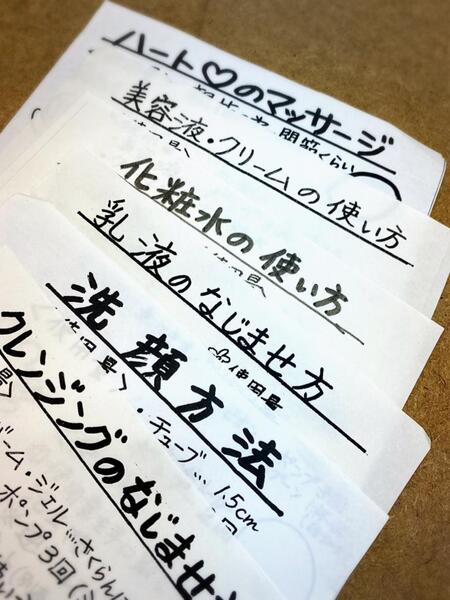 ハート♡のマッサージ
美容液・クリームの使い方
化粧水の使い方
乳液のなじませ方
使用量
洗顔方法
・チューブ… 1.5cm
クレンジングのなじませ方
ーム・ジェル…さくらんぼ
ポンプ3回